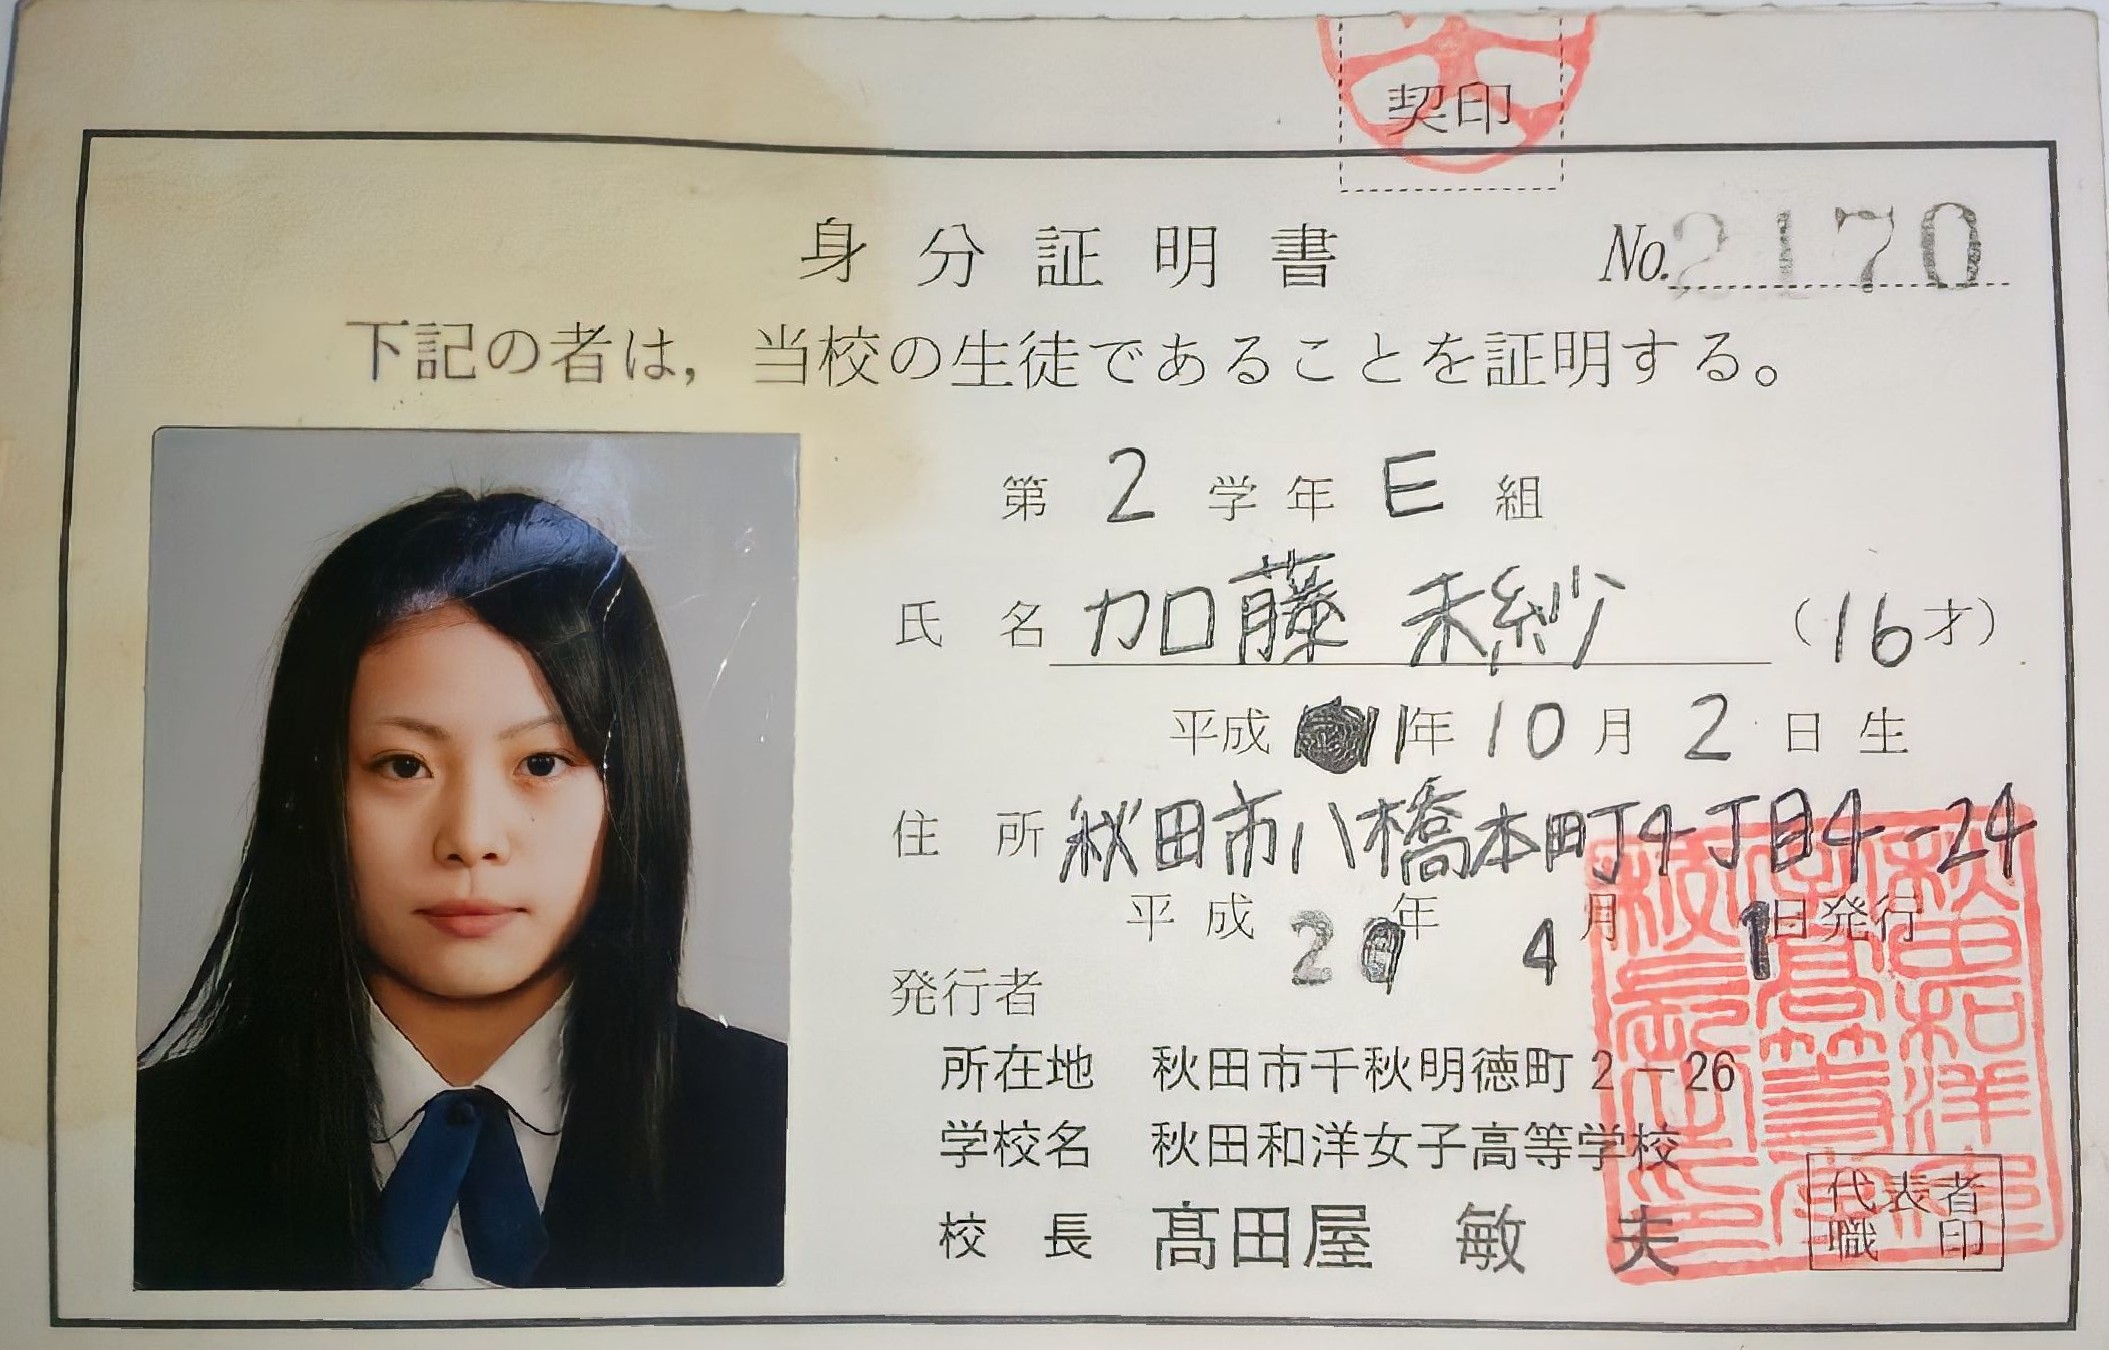 契印
身分証明書 No.2170
下記の者は，当校の生徒であることを証明する。
第 2 学年 E 組
氏名 加藤 未紗 (16才)
平成 11年 10月 2日生
住所 秋田市八橋本町4丁目4-24
平成 20年 4月 1日発行
発行者
所在地 秋田市千秋明徳町2－26
学校名 秋田和洋女子高等学校
校長 髙田屋 敏夫
代表者
職印